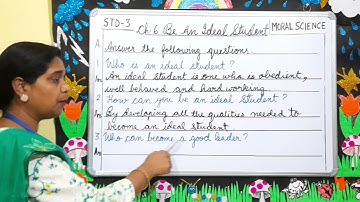 STD-3 Ch:6 Be An Ideal Student MORAL SCIENCE
A Answer the following questions.
1 Who is an ideal student?
Ans An ideal student is one who is obedient,
well behaved and hard working.
2 How can you be an ideal student?
Ans By developing all the qualities needed to
become an ideal student
3. Who can become a good leader?
Ans